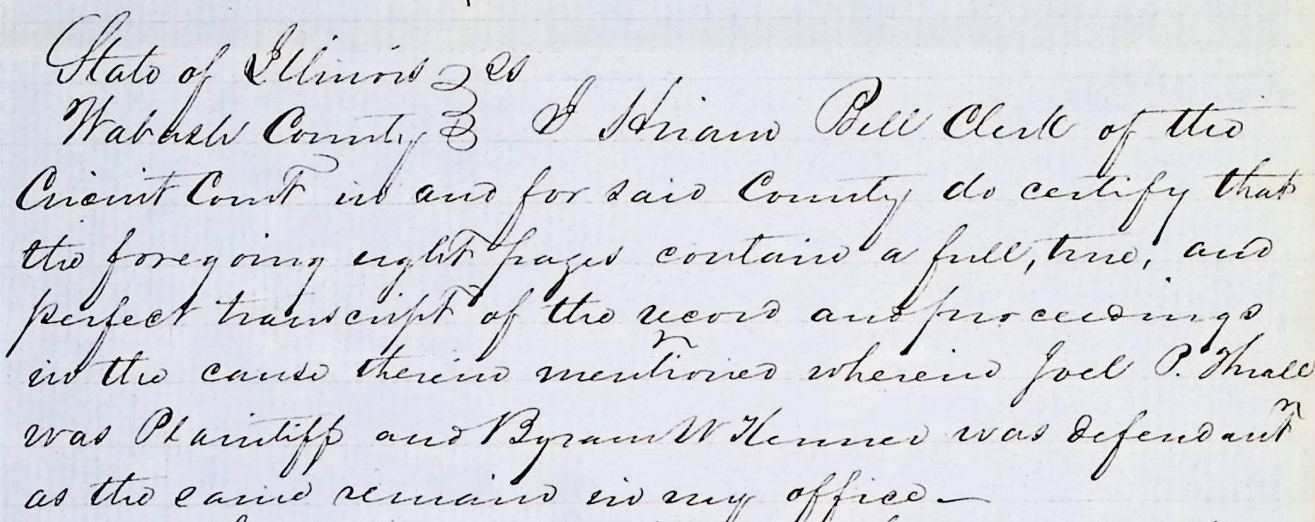 State of Illinois } ss
Wabash County } I Hiram Bell Clerk of the
Circuit Court in and for said County do certify that
the foregoing eight pages contain a full, true, and
perfect transcript of the record and proceedings
in the cause therein mentioned wherein Joel P. Thrall
was Plaintiff and Byram W Kenner was defendant
as the same remain in my office —